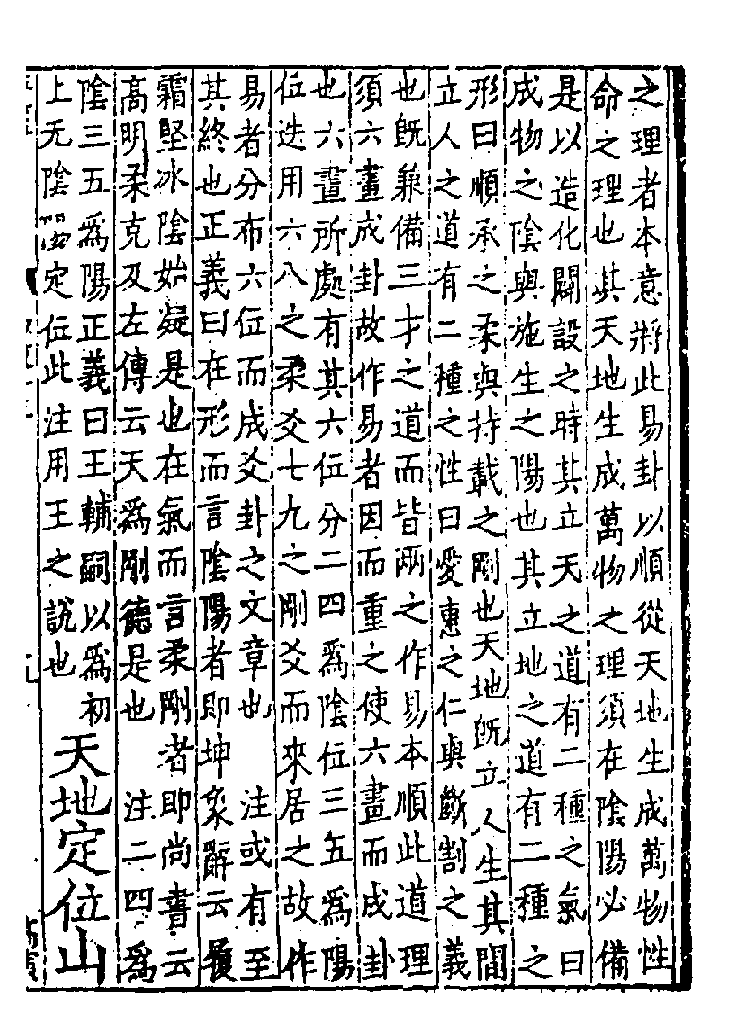 之理者本意將此易卦以順從天地生成萬物性
命之理也其天地生成萬物之理須在陰陽必備
是以造化闢設之時其立天之道有二種之氣曰
成物之陰與施生之陽也其立地之道有二種之
形曰順承之柔與持載之剛也天地既立人生其間
立人之道有二種之性曰愛惠之仁與斷割之義
也既兼備三才之道而皆兩之作易本順此道理
須六畫成卦故作易者因而重之使六畫而成卦
也六畫所處有其六位分二四爲陰位三五爲陽
位迭用六八之柔爻七九之剛爻而來居之故作
易者分布六位而成爻卦之文章也　注或有至
其終也正義曰在形而言陰陽者即坤象辭云履
霜堅冰陰始凝是也在氣而言柔剛者即尚書云
高明柔克及左傳云天爲剛德是也　注二四爲
陰三五爲陽正義曰王輔嗣以爲初
上无陰陽定位此注用王之說也
天地定位山